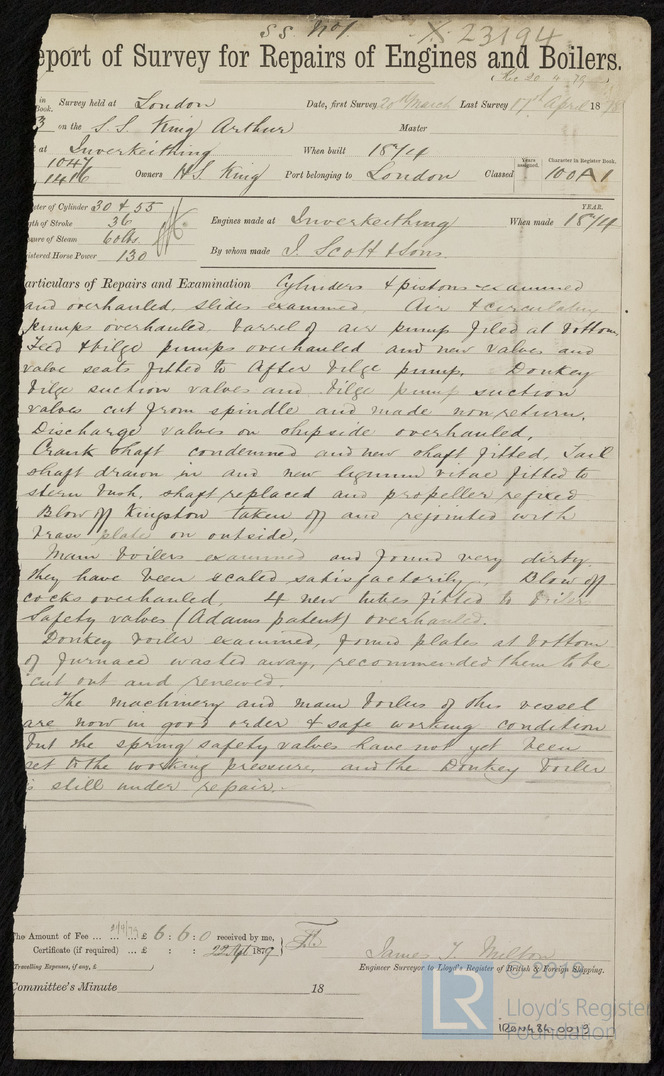 S.S. No 1 X 23194
eport of Survey for Repairs of Engines and Boilers.
in Book. Survey held at London Date, first Survey 20th March Last Survey 17th April 18
3 on the S.S. King Arthur Master
at Inverkeithing When built 1874
1047
1416 Owners H.S. King Port belonging to London Years assigned. Classed Character in Register Book. 100A1
ter of Cylinder 30 & 55
gth of Stroke 36 Engines made at Inverkeithing When made YEAR. 1874
sure of Steam 60 lbs
istered Horse Power 130 By whom made J. Scott & Sons
articulars of Repairs and Examination Cylinders & pistons examined
and overhauled, slides examined. Air & circulating
pumps overhauled, barrel of air pump filed at bottom.
Feed & bilge pumps overhauled and new valves and
valve seats fitted to After bilge pump. Donkey
bilge suction valves and bilge pump suction
valves cut from spindle and made nonreturn.
Discharge valves on shipside overhauled.
Crank shaft condemned and new shaft fitted. Tail
shaft drawn in and new lignum vitae fitted to
stern bush, shaft replaced and propeller refixed
Blow off Kingston taken off and rejointed with
brass plate on outside.
Main boilers examined and found very dirty.
they have been scaled satisfactorily. Blow off
cocks overhauled, 4 new tubes fitted to boiler
Safety valves (Adams patent) overhauled.
Donkey boiler examined, found plates at bottom
of furnace wasted away, recommended them to be
cut out and renewed.
The machinery and main boilers of this vessel
are now in good order & safe working condition
but the spring safety valves have not yet been
set to the working pressure, and the Donkey boiler
is still under repair.
The Amount of Fee ... ... ... £ 6 : 6 : 0 received by me,
Certificate (if required) ... £ : : 22 Apl 1879
Travelling Expenses, if any, £ )
James T. Milton
Engineer Surveyor to Lloyd's Register of British & Foreign Shipping.
Committee's Minute 18
LR © 2019
Lloyd's Register
Foundation
IRON484-0019